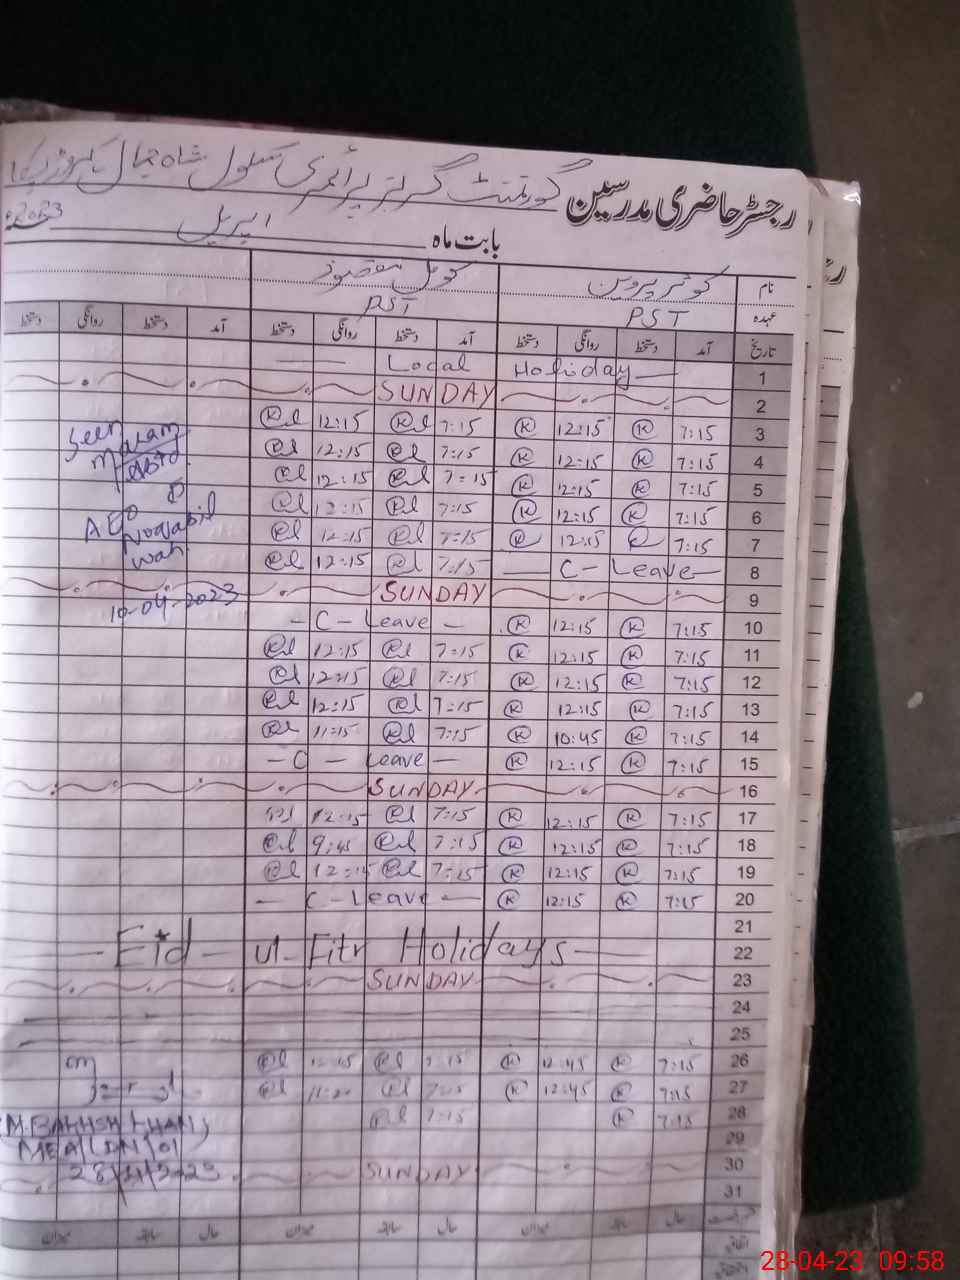 رجسٹر حاضری مدرسین گورنمنٹ گرلز پرائمری سکول شاہ جمال
بابت ماہ اپریل 2023ء
نام کوثر پروین کومل مقصود
عہدہ PST PST
تاریخ آمد دستخط روانگی دستخط آمد دستخط روانگی دستخط آمد دستخط روانگی دستخط
Local Holiday 1
SUNDAY 2
Kl 12:15 Kl 7:15 K 12:15 K 7:15 3
Kl 12:15 Kl 7:15 K 12:15 K 7:15 4
Kl 12:15 Kl 7:15 K 12:15 K 7:15 5
Kl 12:15 Kl 7:15 K 12:15 K 7:15 6
Kl 12:15 Kl 7:15 K 12:15 K 7:15 7
Kl 12:15 Kl 7:15 C-Leave 8
Seen
AEO
wah
10-04-2023
SUNDAY 9
C-Leave K 12:15 K 7:15 10
Kl 12:15 Kl 7:15 K 12:15 K 7:15 11
Kl 12:15 Kl 7:15 K 12:15 K 7:15 12
Kl 12:15 Kl 7:15 K 12:15 K 7:15 13
Kl 11:15 Kl 7:15 K 10:45 K 7:15 14
C-Leave K 12:15 K 7:15 15
SUNDAY 16
12:15 Kl 7:15 K 12:15 K 7:15 17
Kl 9:45 Kl 7:15 K 12:15 K 7:15 18
Kl 12:15 Kl 7:15 K 12:15 K 7:15 19
C-Leave K 12:15 K 7:15 20
21
Eid-ul-Fitr Holidays 22
SUNDAY 23
24
25
Kl Kl 7:15 K 12:45 K 7:15 26
Kl Kl 7:15 K 12:45 K 7:15 27
Kl 7:15 K 7:15 28
M.BAKHSH KHAN
MEA/LDN/01
28/4/2023
29
SUNDAY 30
31
میزان سابقہ حال میزان سابقہ حال میزان سابقہ حال
28-04-23 09:58